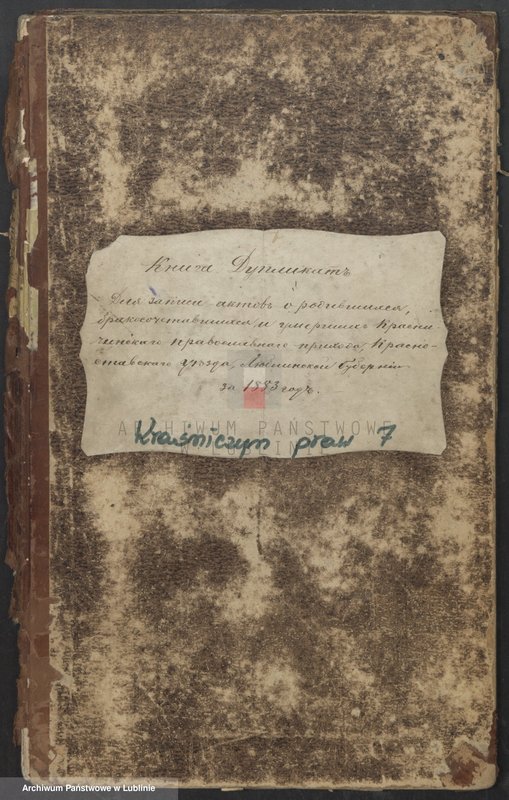 Книга Дупликатъ
Для записи актовъ о родившихся,
бракосочетавшихся и умершихъ Красни-
чинскаго православнаго прихода, Красно-
ставскаго уѣзда, Люблинской Губерніи
за 1883 годъ.
ARCHIWUM PAŃSTWOWE
W LUBLINIE
Kraśniczyn praw 7
Archiwum Państwowe w Lublinie